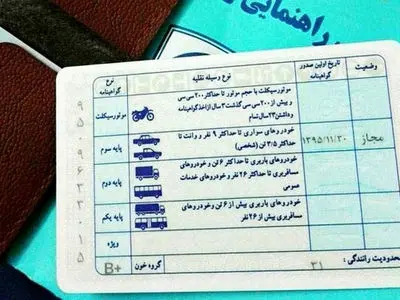 راهنمایی و
نوع گواهینامه
نوع وسیله نقلیه
تاریخ اولین صدور گواهینامه
وضعیت
موتورسیکلت
موتورسیکلت با حجم موتور تا حداکثر ۲۰۰ سی سی
و بیش از ۲۰۰ سی سی گذشت ۳ سال از اخذ گواهینامه
وداشتن ۲۳ سال تمام
پایه سوم
خودروهای سواری تا حداکثر ۹ نفر و وانت تا
حداکثر ۳/۵ تن (شخصی)
۱۳۹۵/۱۱/۳۰
مجاز
پایه دوم
خودروهای باربری تا حداکثر ۶ تن و خودروهای
مسافربری تا حداکثر ۲۶ نفر و خودروهای خدمات
عمومی
پایه یکم
خودروهای باربری بیش از ۶ تن و خودروهای
مسافربری بیش از ۲۶ نفر
ویژه
B+
گروه خون :
۳۱
محدودیت رانندگی :